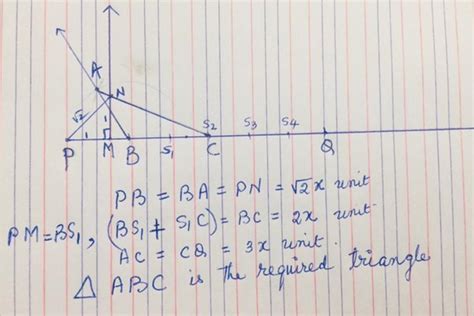 A
N
√2
S2 S3 S4
P M B S1 C Q
PB = BA = PN = √2x unit
PM = BS1, (BS1 + S1C) = BC = 2x unit.
AC = CQ = 3x unit.
△ ABC is the required triangle